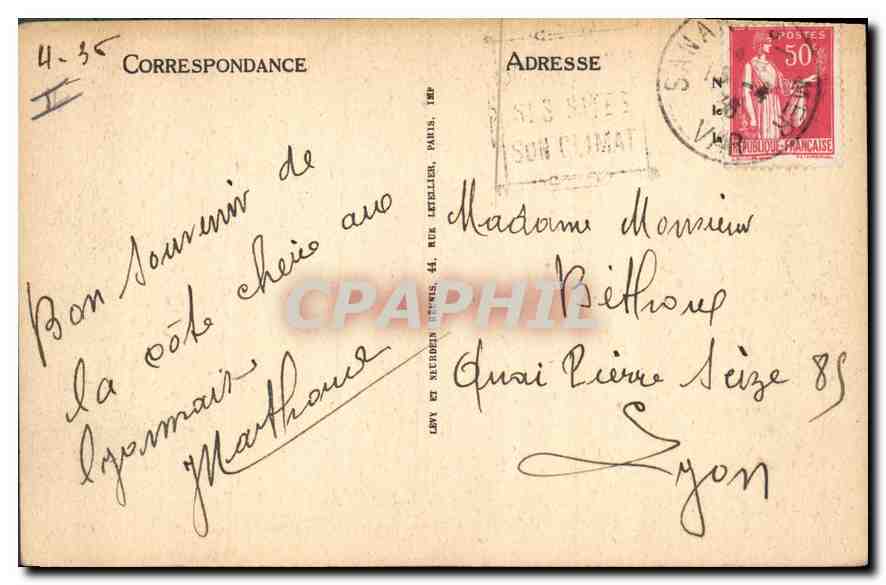 4-35
II
CORRESPONDANCE
Bon souvenir de
la côte chère aux
lyonnais
ADRESSE
SES SITES
SON CLIMAT
SANAR
VAR
POSTES
50
REPUBLIQUE FRANÇAISE
LÉVY ET NEURDEIN RÉUNIS, 44, RUE LETELLIER, PARIS, IMP
Madame Monsieur
Béthoux
Quai Pierre Seize 85
Lyon
CPAPHIL